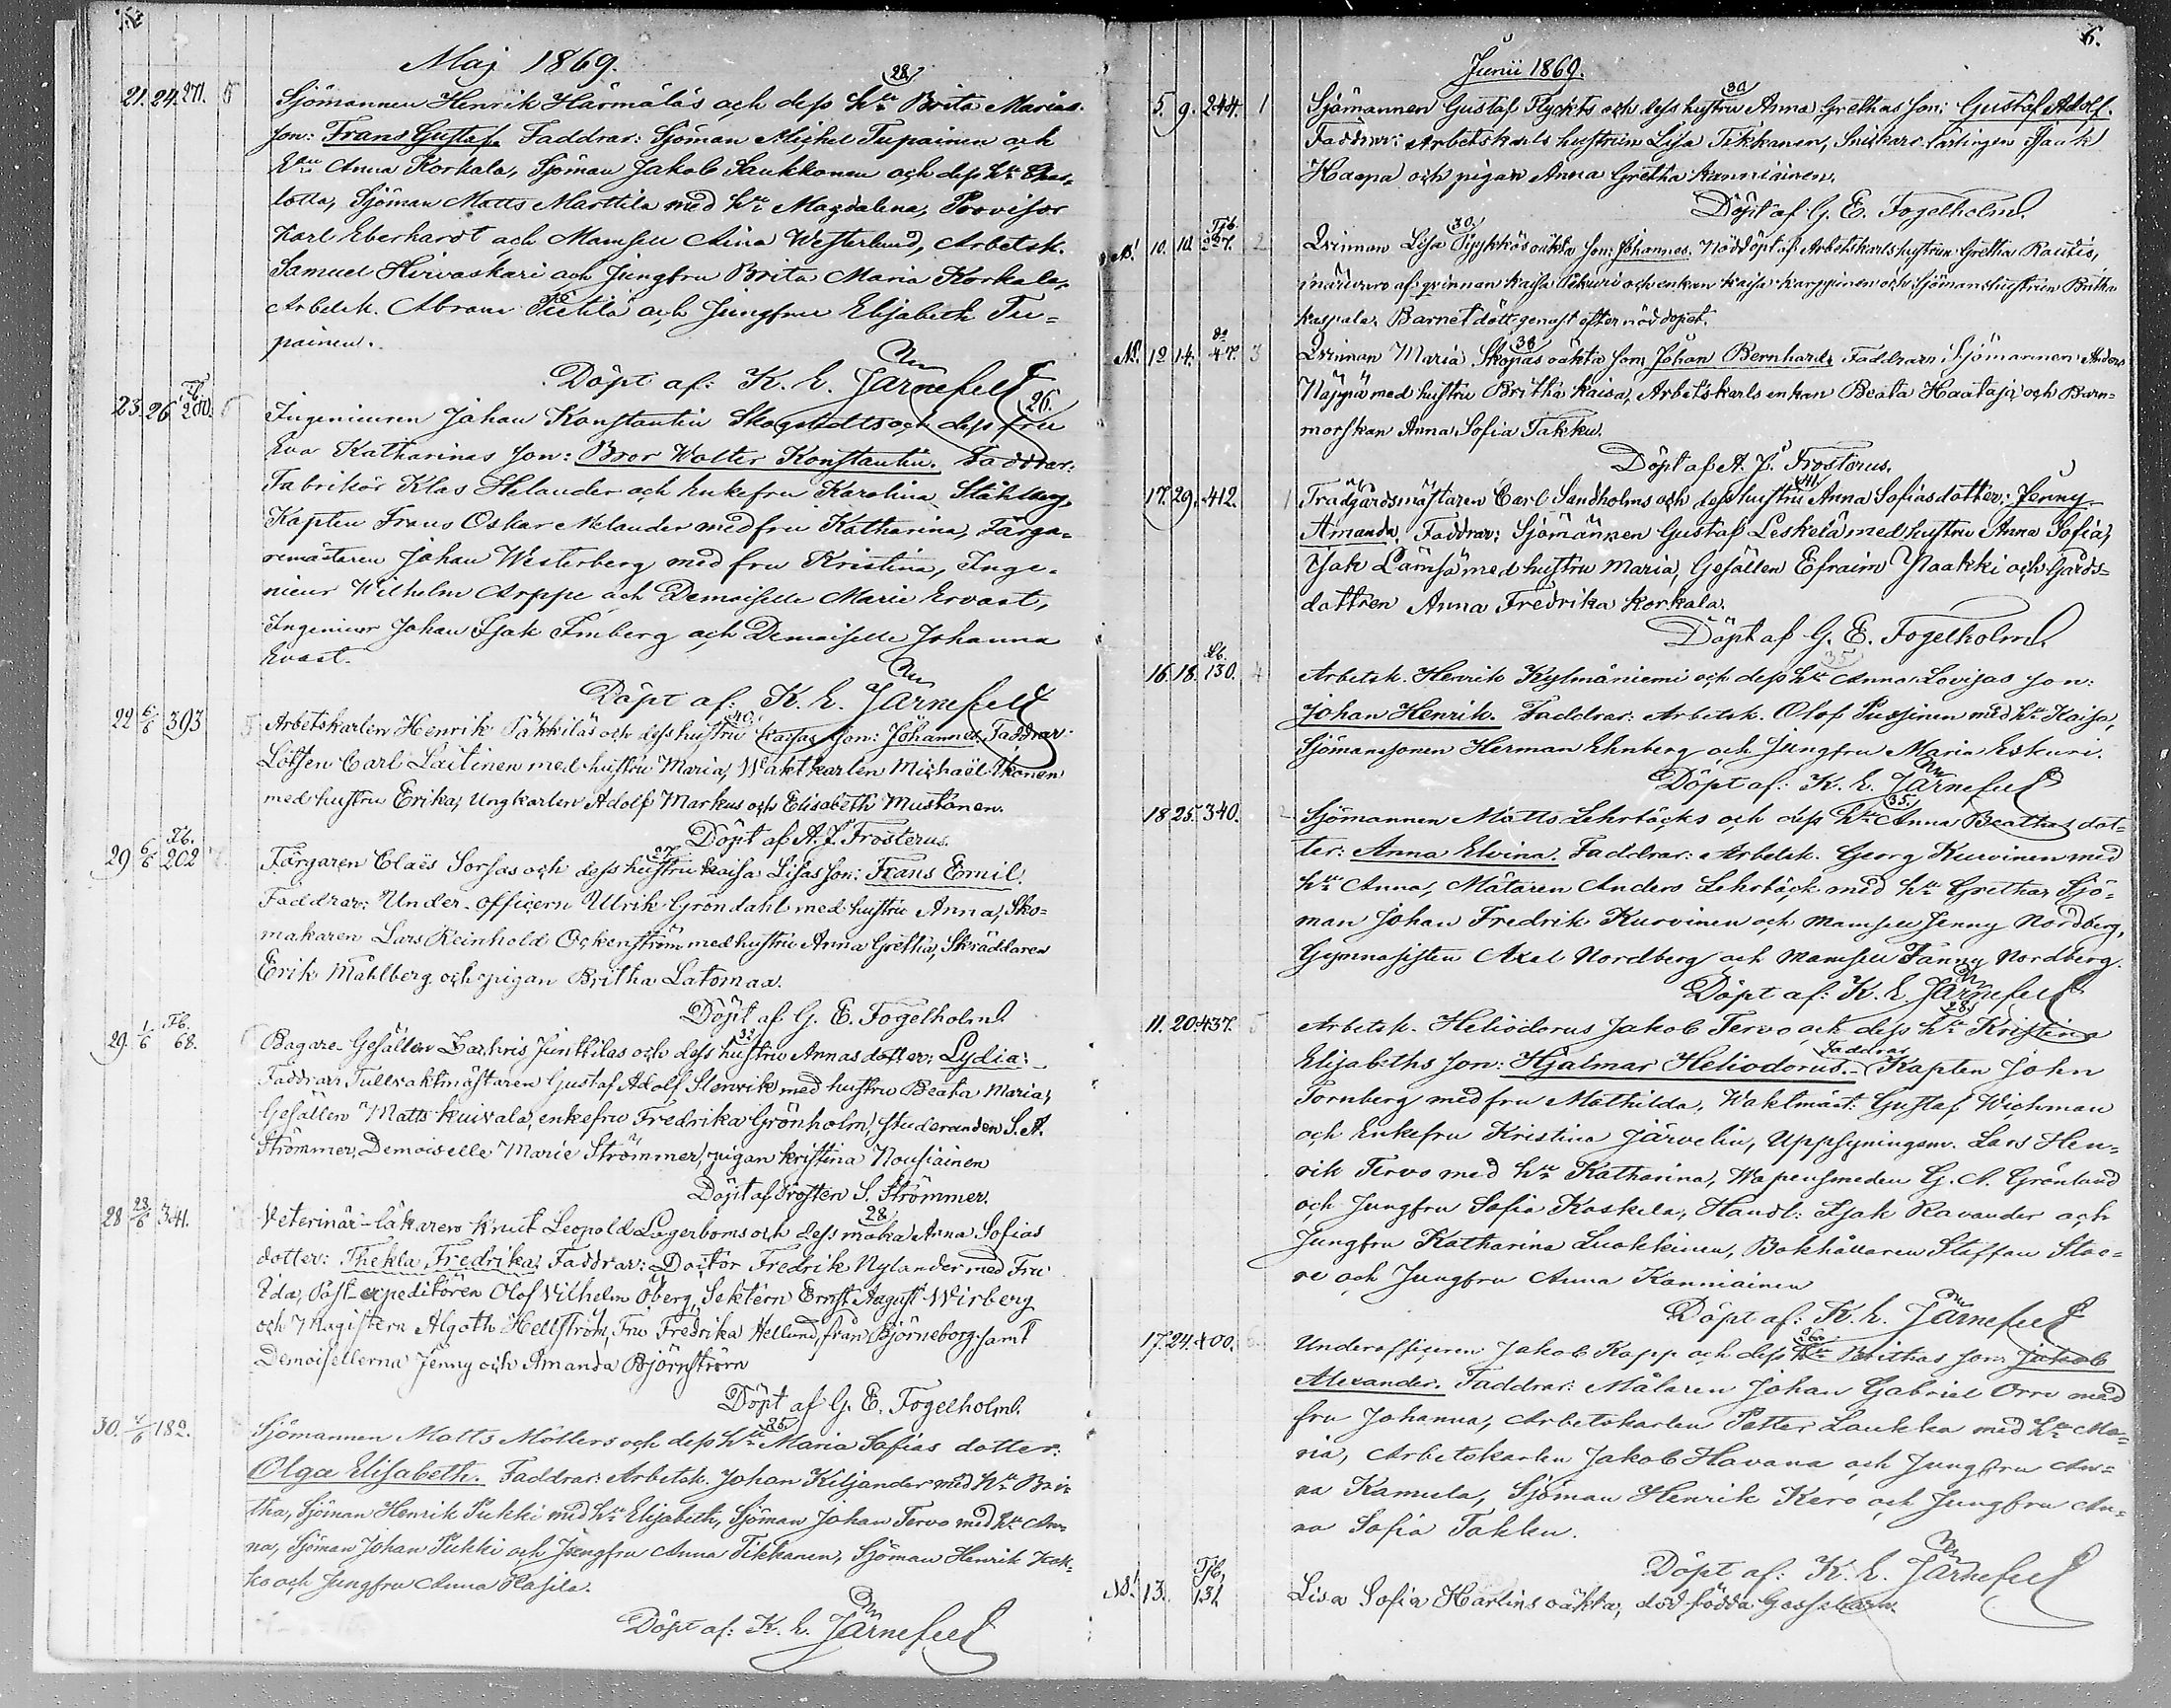 Maj 1869.
21. 24. 271. 5 Sjömannen Henrik Härmäläs och dess hu Brita Marias 28
son: Frans Gustaf. Faddrar: Sjöman Michel Tupainen och
Anna Korkala, Sjöman Jakob Saukkonen och dess hu Char-
lotta, Sjöman Matts Marttila med hu Magdalena, Provisor
Karl Eberhardt och Mamsell Aina Westerlund, Arbetsk.
Samuel Hirvaskari och Jungfru Brita Maria Korkala,
Arbetsk. Abram Pietilä och Jungfru Elisabeth Tu-
painen.
Döpt af: K. E. Järnefelt
23. 26. Tb. 200. 6 Ingenieuren Johan Konstantin Skogstedts och dess fru 26.
Eva Katharinas son: Bror Walter Konstantin. Faddrar:
Fabrikör Klas Helander och Enkefru Karolina Ståhlberg,
Kapten Frans Oskar Melander med fru Katharina, Färga-
remästaren Johan Westerberg med fru Kristina, Inge-
nieur Wilhelm Arppe och Demoiselle Marie Ervast,
Ingenieur Johan Isak Imberg och Demoiselle Johanna
Ervast.
Döpt af: K. E. Järnefelt
22 6/6 393 Arbetskarlen Henrik Säkkiläs och dess hustru Kaisas son: Johannes. Faddrar 40.
Lotsen Carl Laitinen med hustru Maria, Waktkarlen Michaël Ikonen
med hustru Erika, Ungkarlen Adolf Markus och Elisabeth Mustonen.
Döpt af A. J. Frosterus.
29 6/6 Tb. 202 Färgaren Claës Sorsas och dess hustru Kaisa Lisas son: Frans Emil.
Faddrar: Under-officern Ulrik Gröndahl med hustru Anna, Sko-
makaren Lars Reinhold Ockenström med hustru Anna Gretha, Skräddaren
Erik Mahlberg och pigan Britha Latomaa.
Döpt af G. E. Fogelholm.
29. 1/6 Tb. 68. Bagare-Gesällen Zachris Junttilas och dess hustru Annas dotter: Lydia:
Faddrar: Tullvaktmästaren Gustaf Adolf Stenvik med hustru Beata Maria,
Gesällen Matts Kuivala, enkefru Fredrika Grönholm, Studeranden S. A.
Strömmer, Demoiselle Marie Strömmer, pigan Kristina Nousiainen
Döpt af Prosten S. Strömmer.
28 23/6 341. Veterinär-läkaren Knut Leopold Lagerboms och dess maka Anna Sofias 28
dotter: Thekla Fredrika. Faddrar: Doctor Fredrik Nylander med Fru
Ida, Post-expeditören Olof Vilhelm Öberg, Sektern Ernst August Wirberg
och Magistern Algoth Hellström, Fru Fredrika Hellund, från Björneborg, samt
Demoisellerna Jenny och Amanda Björnström
Döpt af G. E. Fogelholm.
30. 4/6 182. Sjömannen Matts Möllers och dess hu Maria Sofias dotter: 25
Olga Elisabeth. Faddrar: Arbetsk. Johan Kiljander med hu Bri-
tha, Sjöman Henrik Pukki med hu Elisabeth, Sjöman Johan Tervo med hu An-
na, Sjöman Johan Pukki och Jungfru Anna Tikkanen, Sjöman Henrik Kok-
ko och Jungfru Anna Rasila.
Döpt af: K. E. Järnefelt
6.
Junii 1869.
5. 9. 244. 1 Sjömannen Gustaf Flyckts och dess hustru Anna Grethas son: Gustaf Adolf.
Faddrar: Arbetskarls hustrun Lisa Tikkanen, Snickare-lärlingen Isaak
Haapa och pigan Anna Gretha Kanniainen.
Döpt af G. E. Fogelholm.
10. 10. Tb. 227. 2 Qvinnan Lisa Pyykkös oäkta son: Johannes. Nöddöpt af Arbetskarlshustrun Gretha Rautio, 30.
i närvaro af qvinnan Kaisa Pekuri och enkan Kaisa Karppinen och Sjömanshustrun Britha
Kaspala. Barnet dött genast efter nöddopet.
12 14. do 47. 3 Qvinnan Maria Skopas oäkta son Johan Bernhard. Faddrar: Sjömannen Anders
Näppä med hustru Britha Kaisa, Arbetskarls enkan Beata Haataja och Barn-
morskan Anna Sofia Takku.
Döpt af A. J. Frosterus.
17. 29. 412. 1 Trädgårdsmästaren Carl Sandholms och dess hustru Anna Sofias dotter: Jenny
Amanda. Faddrar: Sjömännen Gustaf Leskelä med hustru Anna Sofia,
Isak Lämsä med hustru Maria, Gesällen Efraim Naakki och Gårds-
dottren Anna Fredrika Korkala.
Döpt af G. E. Fogelholm.
16. 18. Tb. 130. 4 Arbetsk. Henrik Kylmäniemi och dess hu Anna Lovisas son: 35
Johan Henrik. Faddrar: Arbetsk. Olof Pussinen med hu Kaisa,
Sjömanssonen Herman Ehnberg och Jungfru Maria Eskuri.
Döpt af: K. E. Järnefelt
18 25. 340. 2 Sjömannen Matts Lehrbäcks och dess hu Anna Beathas dot- 35.
ter: Anna Elvina. Faddrar: Arbetsk. Georg Kurvinen med
hu Anna, Målaren Anders Lehrbäck med hu Gretha, Sjö-
man Johan Fredrik Kurvinen och Mamsell Jenny Nordberg,
Gymnasisten Axel Nordberg och Mamsell Fanny Nordberg.
Döpt af: K. E. Järnefelt
11. 20. 437. 5 Arbetsk. Heliodorus Jakob Tervo och dess hu Kristina 28.
Elisabeths son: Hjalmar Heliodorus. Faddrar Kapten John
Tornberg med fru Mathilda, Waktmäst: Gustaf Wichman
och Enkefru Kristina Järvelin, Uppsyningsm. Lars Hen-
rik Tervo med hu Katharina, Wapensmeden G. A. Grönlund
och Jungfru Sofia Koskela, Handl: Isak Ravander och
Jungfru Katharina Luokkinen, Bokhållaren Staffan Sto-
re och Jungfru Anna Kanniainen
Döpt af: K. E. Järnefelt
17. 24. 400. 6 Underofficeren Jakob Kapp och dess hu Brithas son: Jakob
Alexander. Faddrar: Målaren Johan Gabriel Orre med
fru Johanna, Arbetskarlen Petter Laukka med hu Ma-
ria, Arbetskarlen Jakob Havana och Jungfru An-
na Kamula, Sjöman Henrik Kero och Jungfru An-
na Sofia Takku.
Döpt af: K. E. Järnefelt
13. Tb. 131 Lisa Sofia Harlins oäkta, dödfödda Gossebarn.